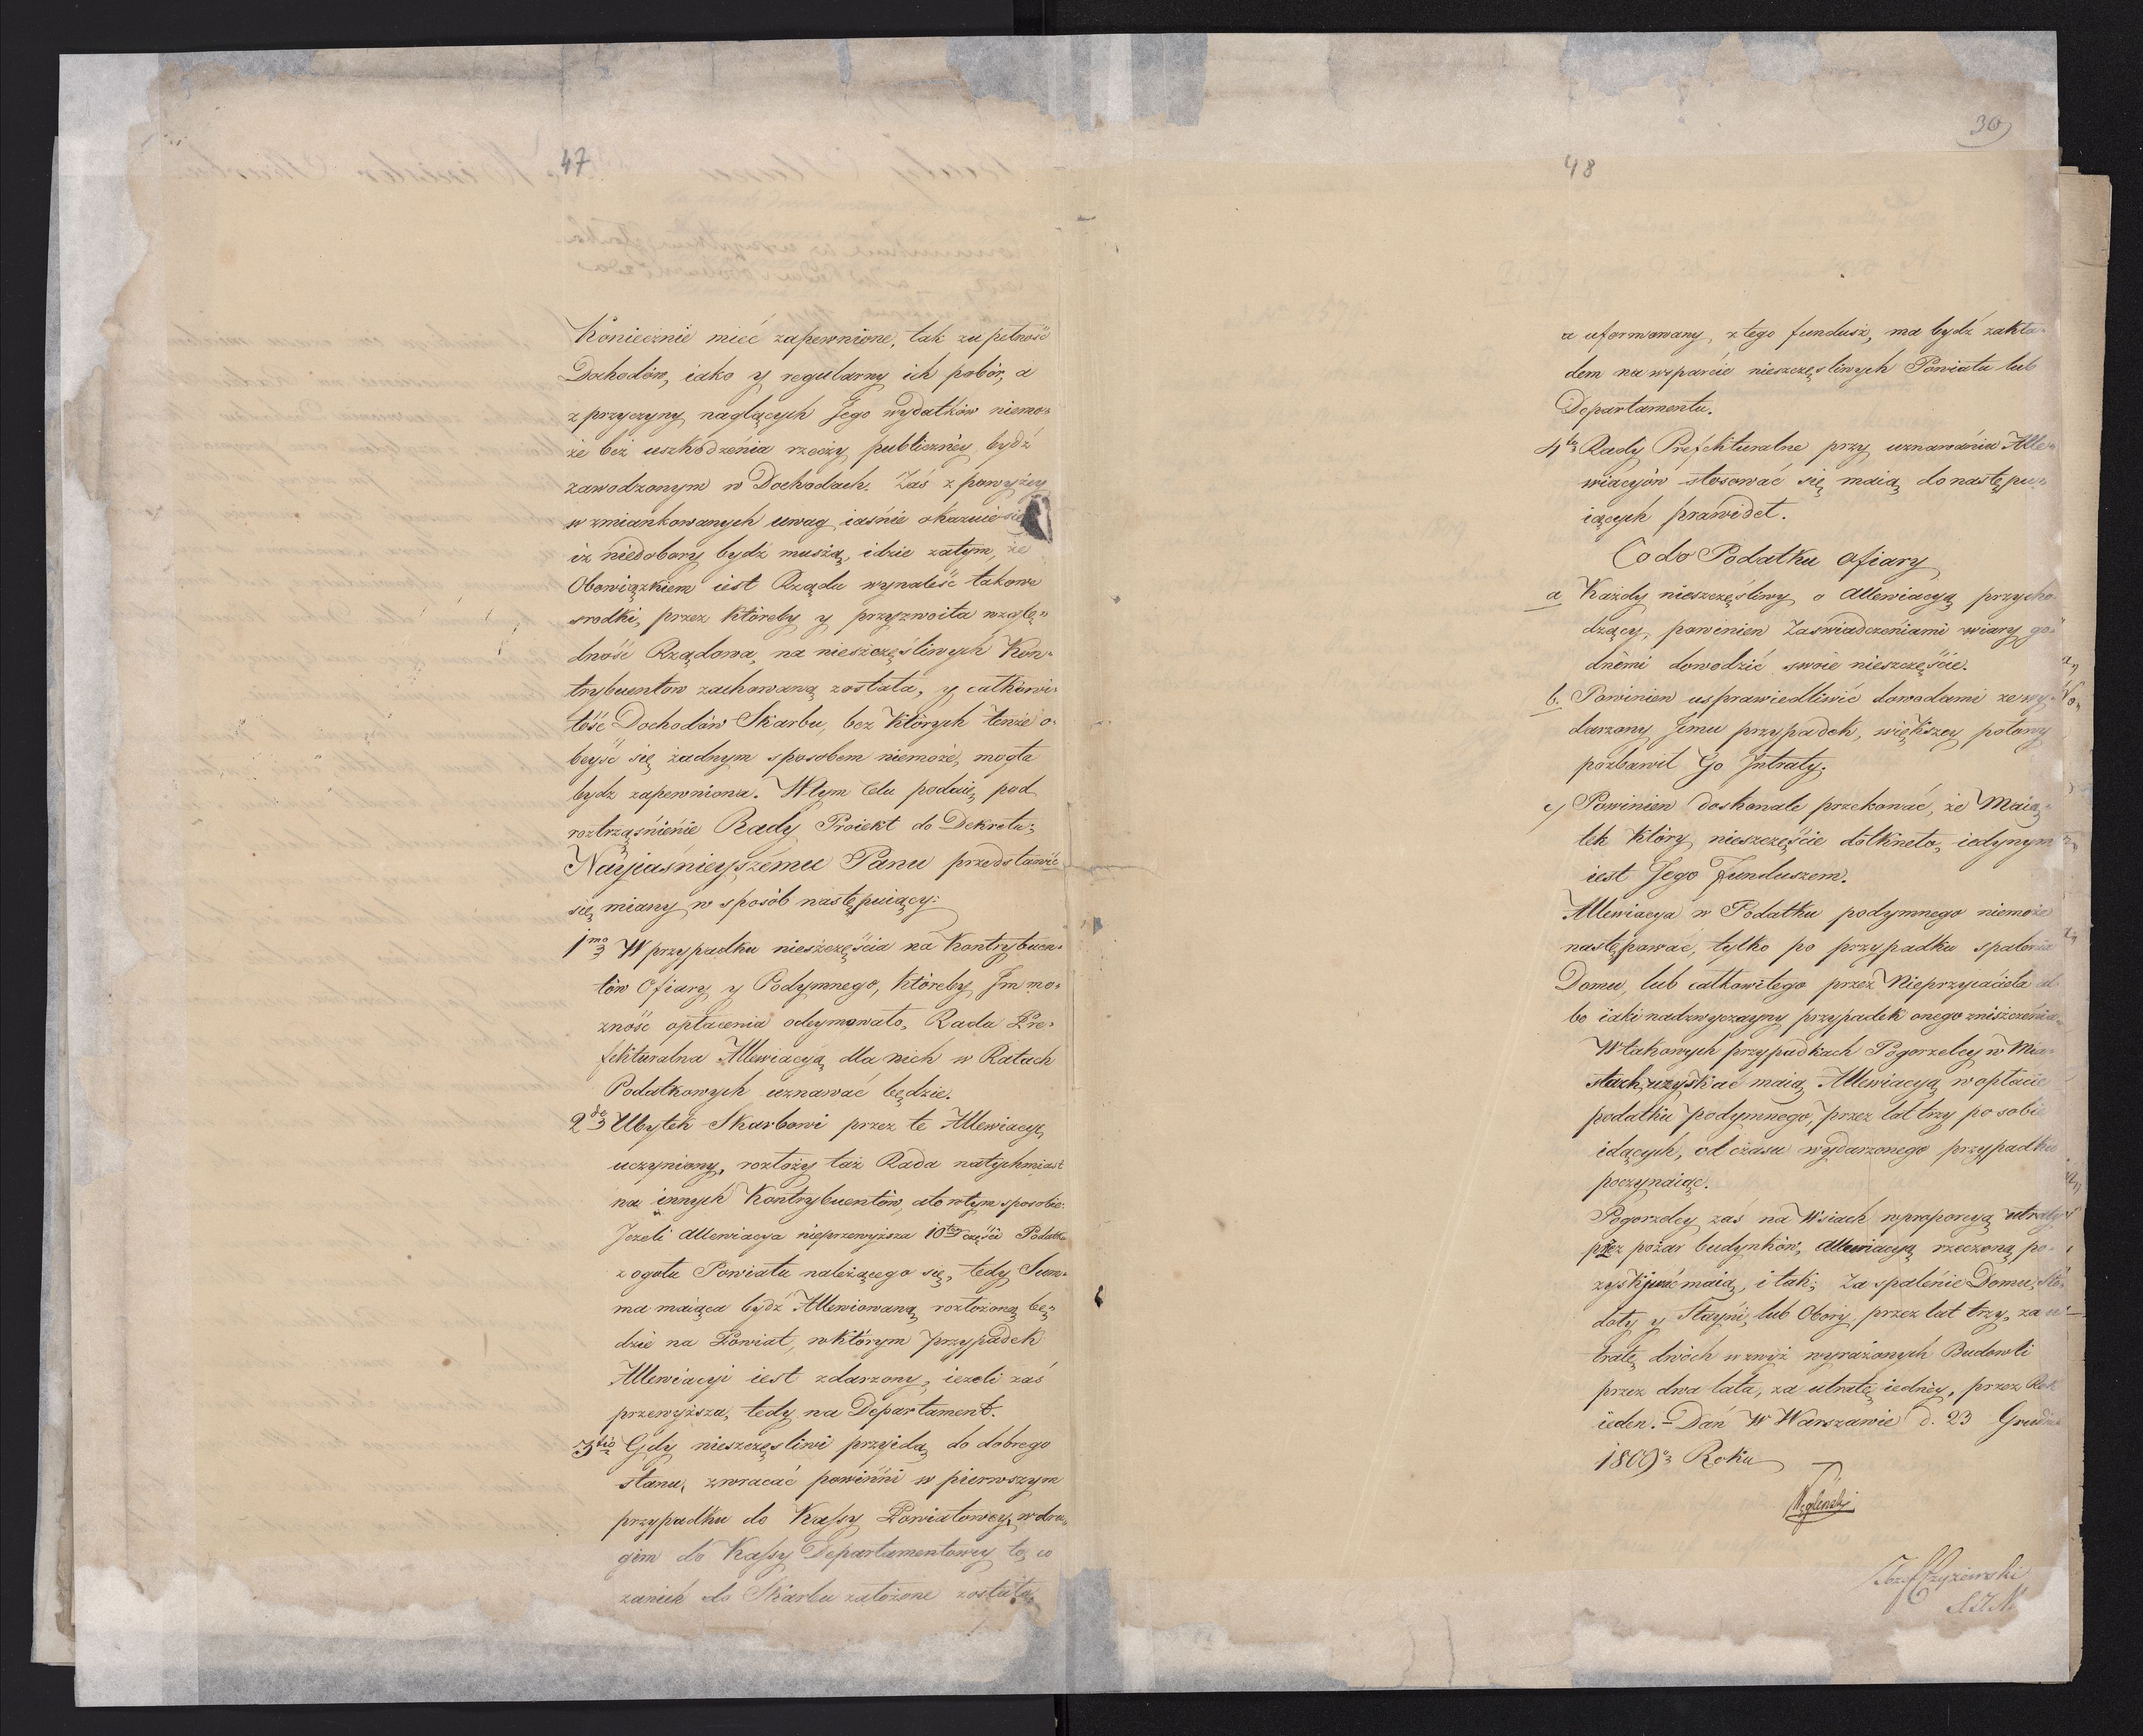 47
Koniecznie mieć zapewnione, tak zupełność
Dochodów, iako y regularny ich pobór, a
z przyczyny naglących Jego wydatków niemo=
że bez uszkodzenia rzeczy publiczney bydź
zawodzonym w Dochodach. Zaś z powyżey
wzmiankowanych uwag iaśnie okazuie się
iż niedobory bydź muszą, idzie zatym, że
Obowiązkiem iest Rządu wynaleść takowe
srodki, przez któreby y przyzwoita wzglę=
dność Rządowa, na nieszczęśliwych Kon=
trybuentow zachowaną została, y całkowi=
tość Dochodów Skarbu, bez których tenże o=
beyść się żadnym sposobem niemoże, mogła
bydz zapewniona. W tym Celu podaię pod
roztrząśnienie Rady Proiekt do Dekretu;
Nayiaśnieyszemu Panu przedstawić
się miany w sposób następuiący:
1mo W przypadku nieszczęścia na Kontrybuen=
tów Ofiary y Podymnego, któreby Im mo=
zność opłacenia odeymowało, Rada Pre=
fekturalna Allewiacyą dla nich w Ratach
Podatkowych uznawać będzie.
2do Ubytek Skarbowi przez te Allewiacye
uczyniony, rozłoży taż Rada natychmiast
na innych Kontrybuentów, a to w tym sposobie:
Jezeli Allewiacya nieprzewyższa 10tey części Podatku
z ogółu Powiatu należącego się, tedy Sum=
ma maiąca bydź Allewiowaną, rozłożoną bę=
dzie na Powiat, w którym przypadek
Allewiacyi iest zdarzony, iezeli zaś
przewyższa, tedy na Departament.
3tio Gdy nieszczęśliwi przyidą do dobrego
stanu, zwracać powinni w pierwszym
przypadku do Kassy Powiatowey, w dru=
gim do Kassy Departamentowey to, co
zanich do Skarbu założone zostało,
30
48
a uformowany z tego fundusz, ma bydź zakła=
dem na wsparcie nieszczęśliwych Powiatu lub
Departamentu.
4to Rady Prefekturalne przy uznawaniu Alle=
wiacyów stosować się maią do następu=
iących prawideł.
Co do Podatku ofiary
a Każdy nieszczęśliwy o Allewiacyą przycho=
dzący, powinien Zaświadczeniami wiary go=
dnemi dowodzić swoie nieszczęście.
b. Powinien usprawiedliwić dowodami ze wy=
darzony Jemu przypadek, większey połowy
pozbawił Go Intraty.
c Powinien doskonale przekonać, że Maią=
tek który nieszczęście dotknęło, iedynym
iest Jego Funduszem.
Allewiacya w Podatku podymnego niemoże
następować, tylko po przypadku spalenia
Domu, lub całkowitego przez Nieprzyiaciela al=
bo iaki nadzwyczayny przypadek onego zniszczenia.
W takowych przypadkach Pogorzelcy w Mia=
stach, uzyskać maią Allewiacyą w opłacie
podatku podymnego, przez lat trzy po sobie
idących, od czasu wydarzonego przypadku
poczynaiąc.
Pogorzelcy zaś na Wsiach w proporcyą utraty
przez pożar budynków, Allewiacyą rzeczoną po=
zyskiwać maią, i tak; Za spalenie Domu, Sto=
doły y Stayni, lub Obory, przez lat trzy, za u=
tratę dwóch wzwyż wyrażonych Budowli
przez dwa lata, za utratę iedney, przez Rok
ieden.= Dań w Warszawie d. 23 Grudnia
1809 Roku
Węgleński
Józef Czyżewski